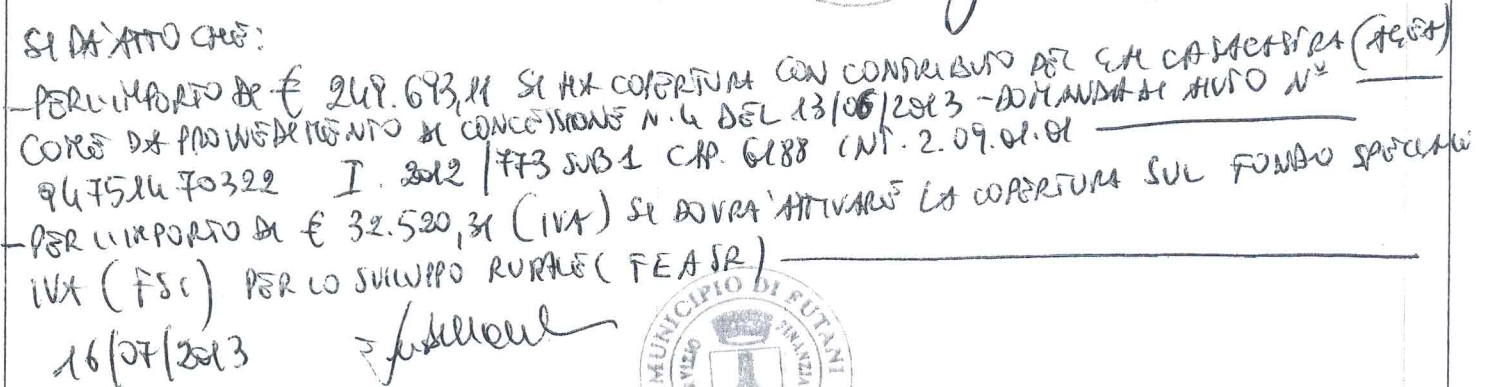 SI DA' ATTO CHE:
- PER L'IMPORTO DI € 249.693,11 SI HA COPERTURA CON CONTRIBUTO DEL (AGEA)
COME DA PROVVEDIMENTO DI CONCESSIONE N. 4 DEL 13/06/2013 - DOMANDA DI AIUTO N°
94751470322 I. 2012/773 SUB 1 CAP. 6188 INT. 2.09.01.01
- PER L'IMPORTO DI € 32.520,31 (IVA) SI DOVRA' ATTIVARE LA COPERTURA SUL FONDO SPECIALE
IVA (FSC) PER LO SVILUPPO RURALE (FEASR)
16/07/2013
MUNICIPIO DI FUTANI